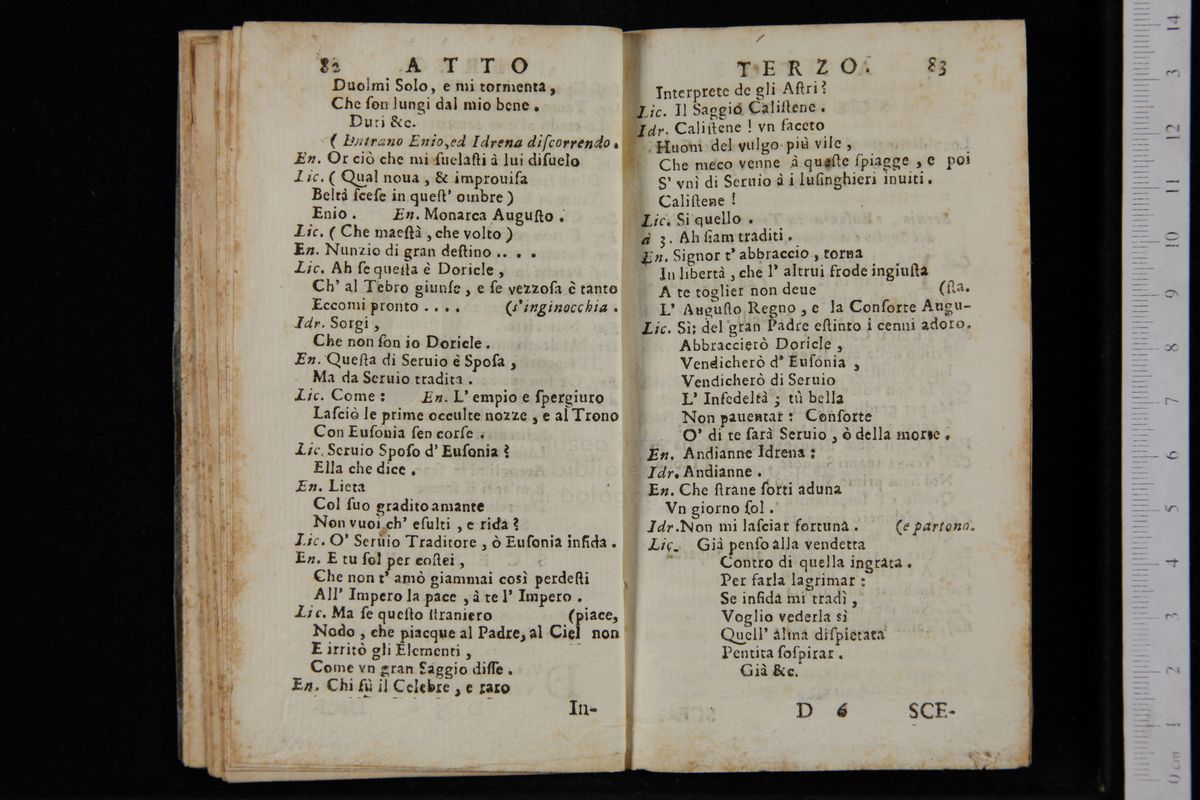 82 ATTO
Duolmi Solo, e mi tormenta,
Che ſon lungi dal mio bene.
Duri &c.
( Entrano Enio, ed Idrena diſcorrendo.
En. Or ciò che mi ſuelaſti à lui diſuelo
Lic. ( Qual noua, & improuiſa
Beltà ſceſe in queſt' ombre )
Enio. En. Monarca Auguſto.
Lic. ( Che maeſtà, che volto )
En. Nunzio di gran deſtino . . . .
Lic. Ah ſe queſta è Doricle,
Ch' al Tebro giunſe, e ſe vezzoſa è tanto
Eccomi pronto . . . . (s'inginocchia.
Idr. Sorgi,
Che non ſon io Doricle.
En. Queſta di Seruio è Spoſa,
Ma da Seruio tradita.
Lic. Come : En. L' empio e ſpergiuro
Laſciò le prime occulte nozze, e al Trono
Con Euſonia ſen corſe.
Lic. Seruio Spoſo d' Euſonia ?
Ella che dice.
En. Lieta
Col ſuo gradito amante
Non vuoi ch' eſulti, e rida ?
Lic. O' Seruio Traditore, ò Euſonia infida.
En. E tu ſol per coſtei,
Che non t' amò giammai così perdeſti
All' Impero la pace, à te l' Impero.
Lic. Ma ſe queſto ſtraniero (piace,
Nodo, che piacque al Padre, al Ciel non
E irritò gli Elementi,
Come vn gran Saggio diſſe.
En. Chi fù il Celebre, e raro
In-
TERZO. 83
Interprete de gli Aſtri?
Lic. Il Saggio Caliſtene.
Idr. Caliſtene ! vn faceto
Huom del vulgo più vile,
Che meco venne à queſte ſpiagge, e poi
S' vnì di Seruio à i luſinghieri inuiti.
Caliſtene !
Lic. Si quello.
à 3. Ah ſiam traditi.
En. Signor t' abbraccio, torna
In libertà, che l' altrui frode ingiuſta
A te toglier non deue (ſta.
L' Auguſto Regno, e la Conſorte Augu-
Lic. Sì: del gran Padre eſtinto i cenni adoro.
Abbraccierò Doricle,
Vendicherò d' Euſonia,
Vendicherò di Seruio
L' Infedeltà ; tù bella
Non pauentar : Conſorte
O' di te ſarà Seruio, ò della morte.
En. Andianne Idrena :
Idr. Andianne.
En. Che ſtrane ſorti aduna
Vn giorno ſol.
Idr. Non mi laſciar fortuna. (e partono.
Lic. Già penſo alla vendetta
Contro di quella ingrata.
Per farla lagrimar :
Se infida mi tradì,
Voglio vederla sì
Quell' alma diſpietata
Pentita ſoſpirar.
Già &c.
D 6 SCE-